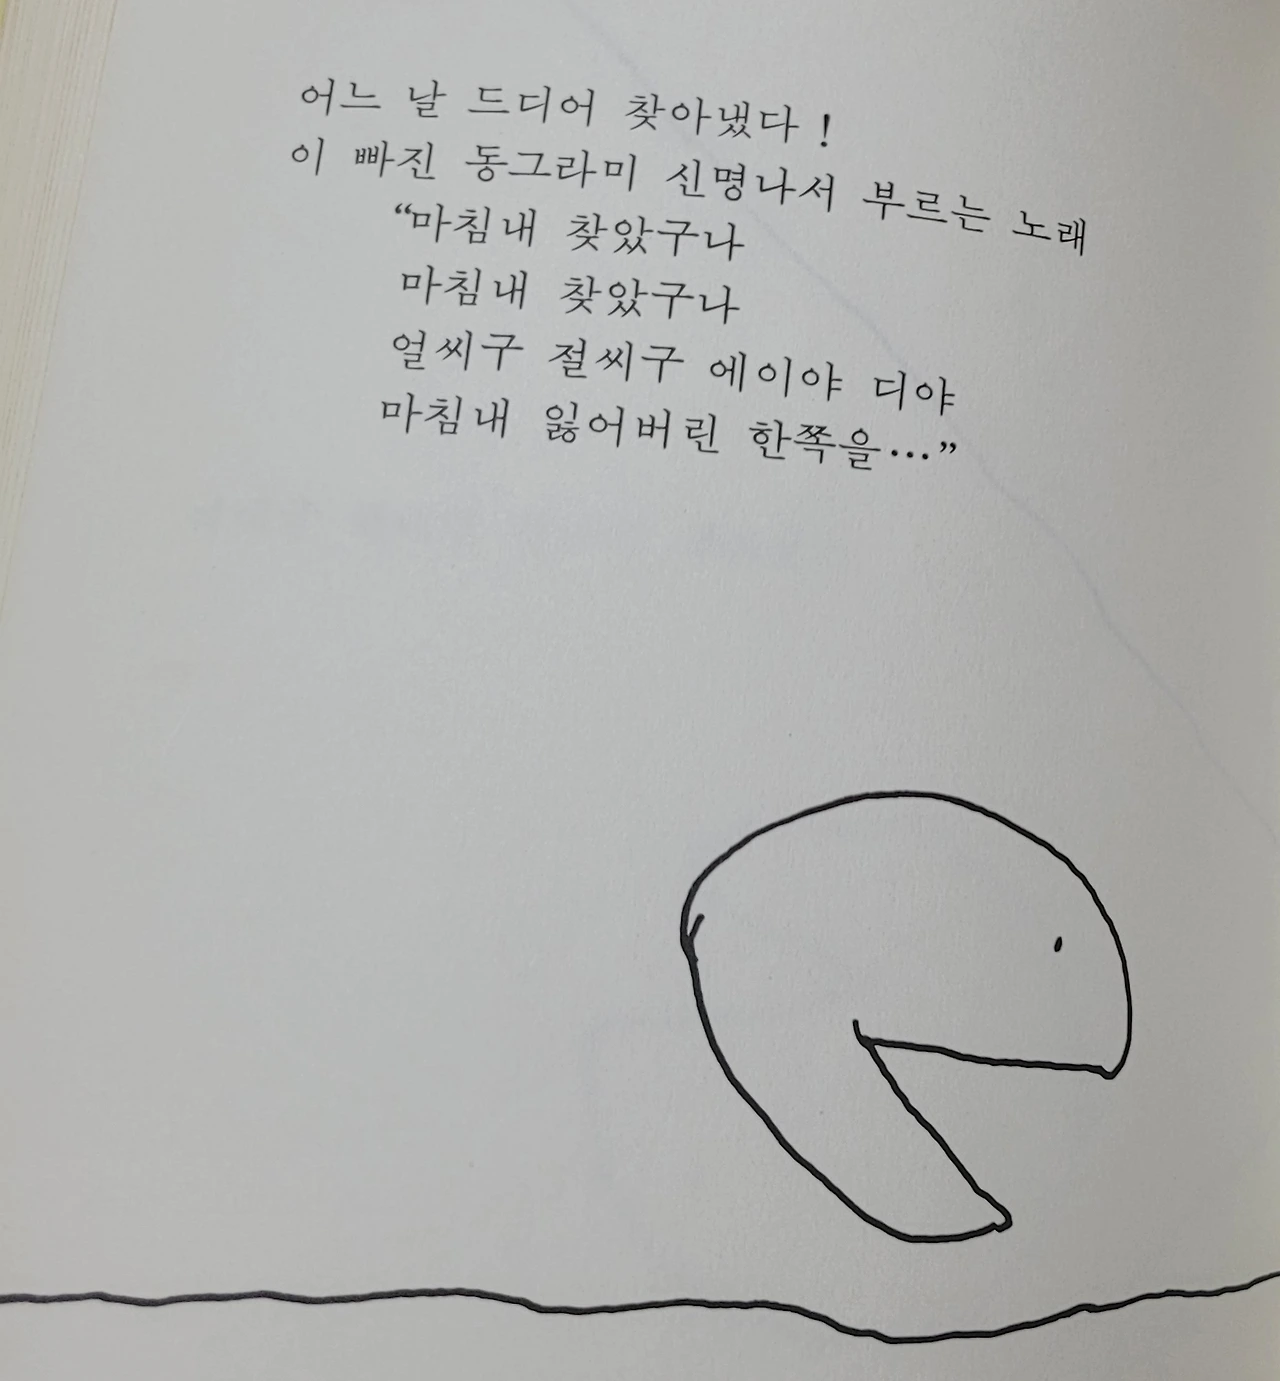 어느 날 드디어 찾아냈다 !
이 빠진 동그라미 신명나서 부르는 노래
“마침내 찾았구나
마침내 찾았구나
얼씨구 절씨구 에이야 디야
마침내 잃어버린 한쪽을…”